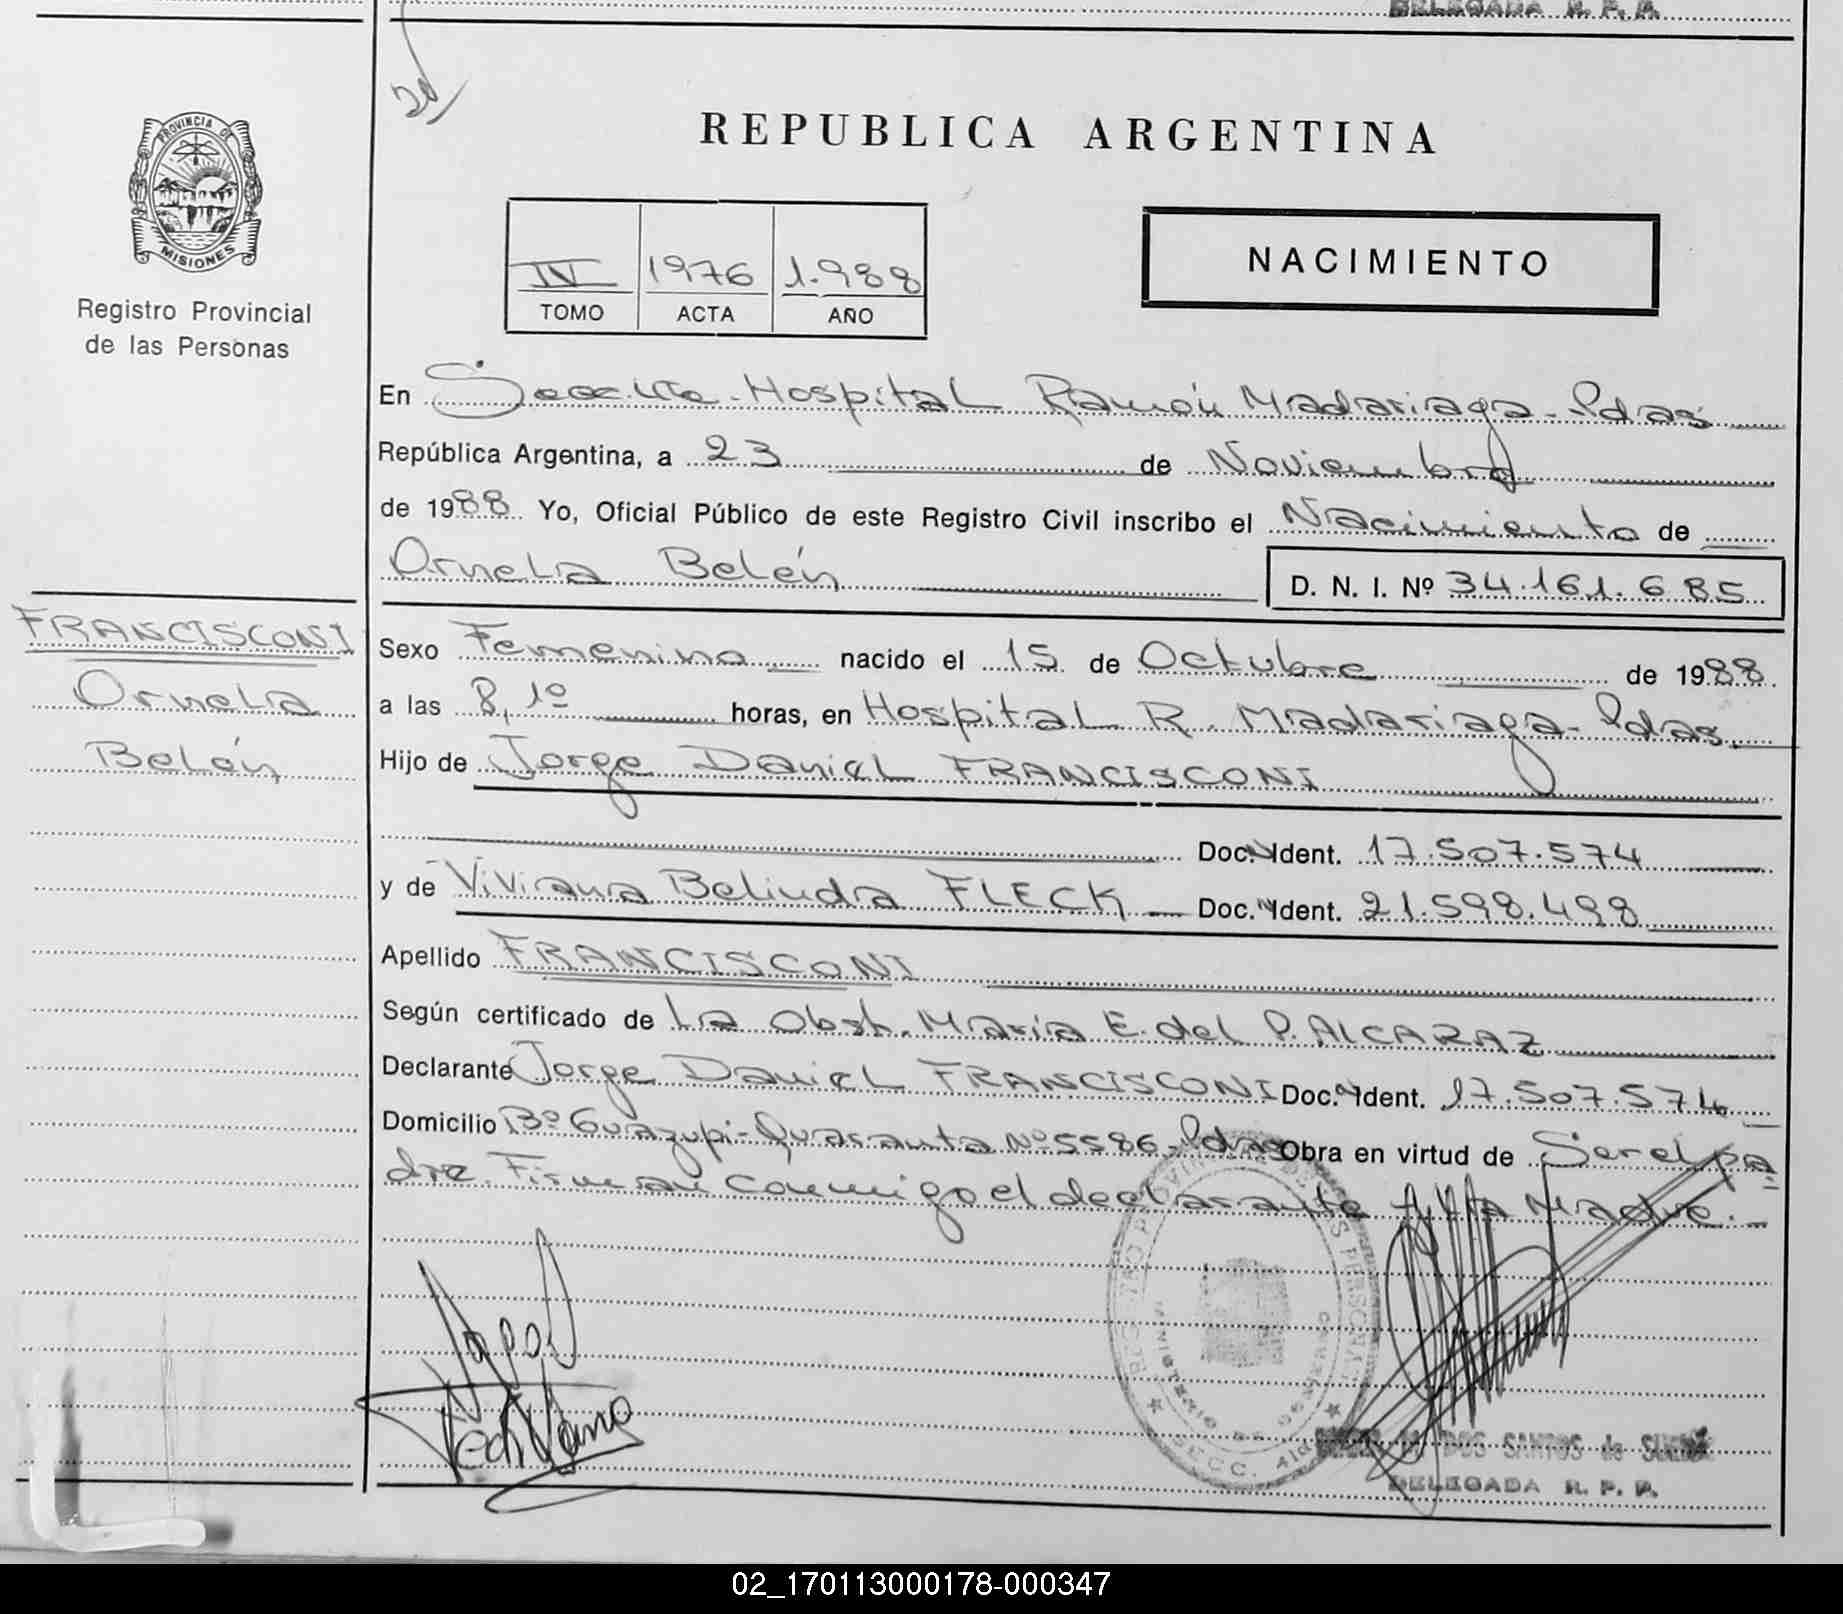 DELEGADA R. P. P.
REPUBLICA ARGENTINA
PROVINCIA DE
MISIONES
Registro Provincial
de las Personas
IV 1976 1.988
TOMO ACTA AÑO
NACIMIENTO
En Hospital Ramón Madariaga - Pdas
República Argentina, a 23 de Noviembre
de 1988 Yo, Oficial Público de este Registro Civil inscribo el Nacimiento de
Ornela Belén D. N. I. Nº 34.161.685
FRANCISCONI
Ornela
Belén
Sexo Femenino nacido el 15 de Octubre de 1988
a las 8,10 horas, en Hospital R. Madariaga - Pdas.
Hijo de Jorge Daniel FRANCISCONI
Doc. Ident. 17.507.574
y de Viviana Belinda FLECK Doc. Ident. 21.598.498
Apellido FRANCISCONI
Según certificado de La Obst. María E. del P. ALCARAZ
Declarante Jorge Daniel FRANCISCONI Doc. Ident. 17.507.574
Domicilio Bº Guazupi - Quaranta Nº 5586 - Pdas Obra en virtud de Ser el pa
dre. Firman conmigo el declarante y la Madre. -
DOS SANTOS de
DELEGADA R. P. P.
02_170113000178-000347